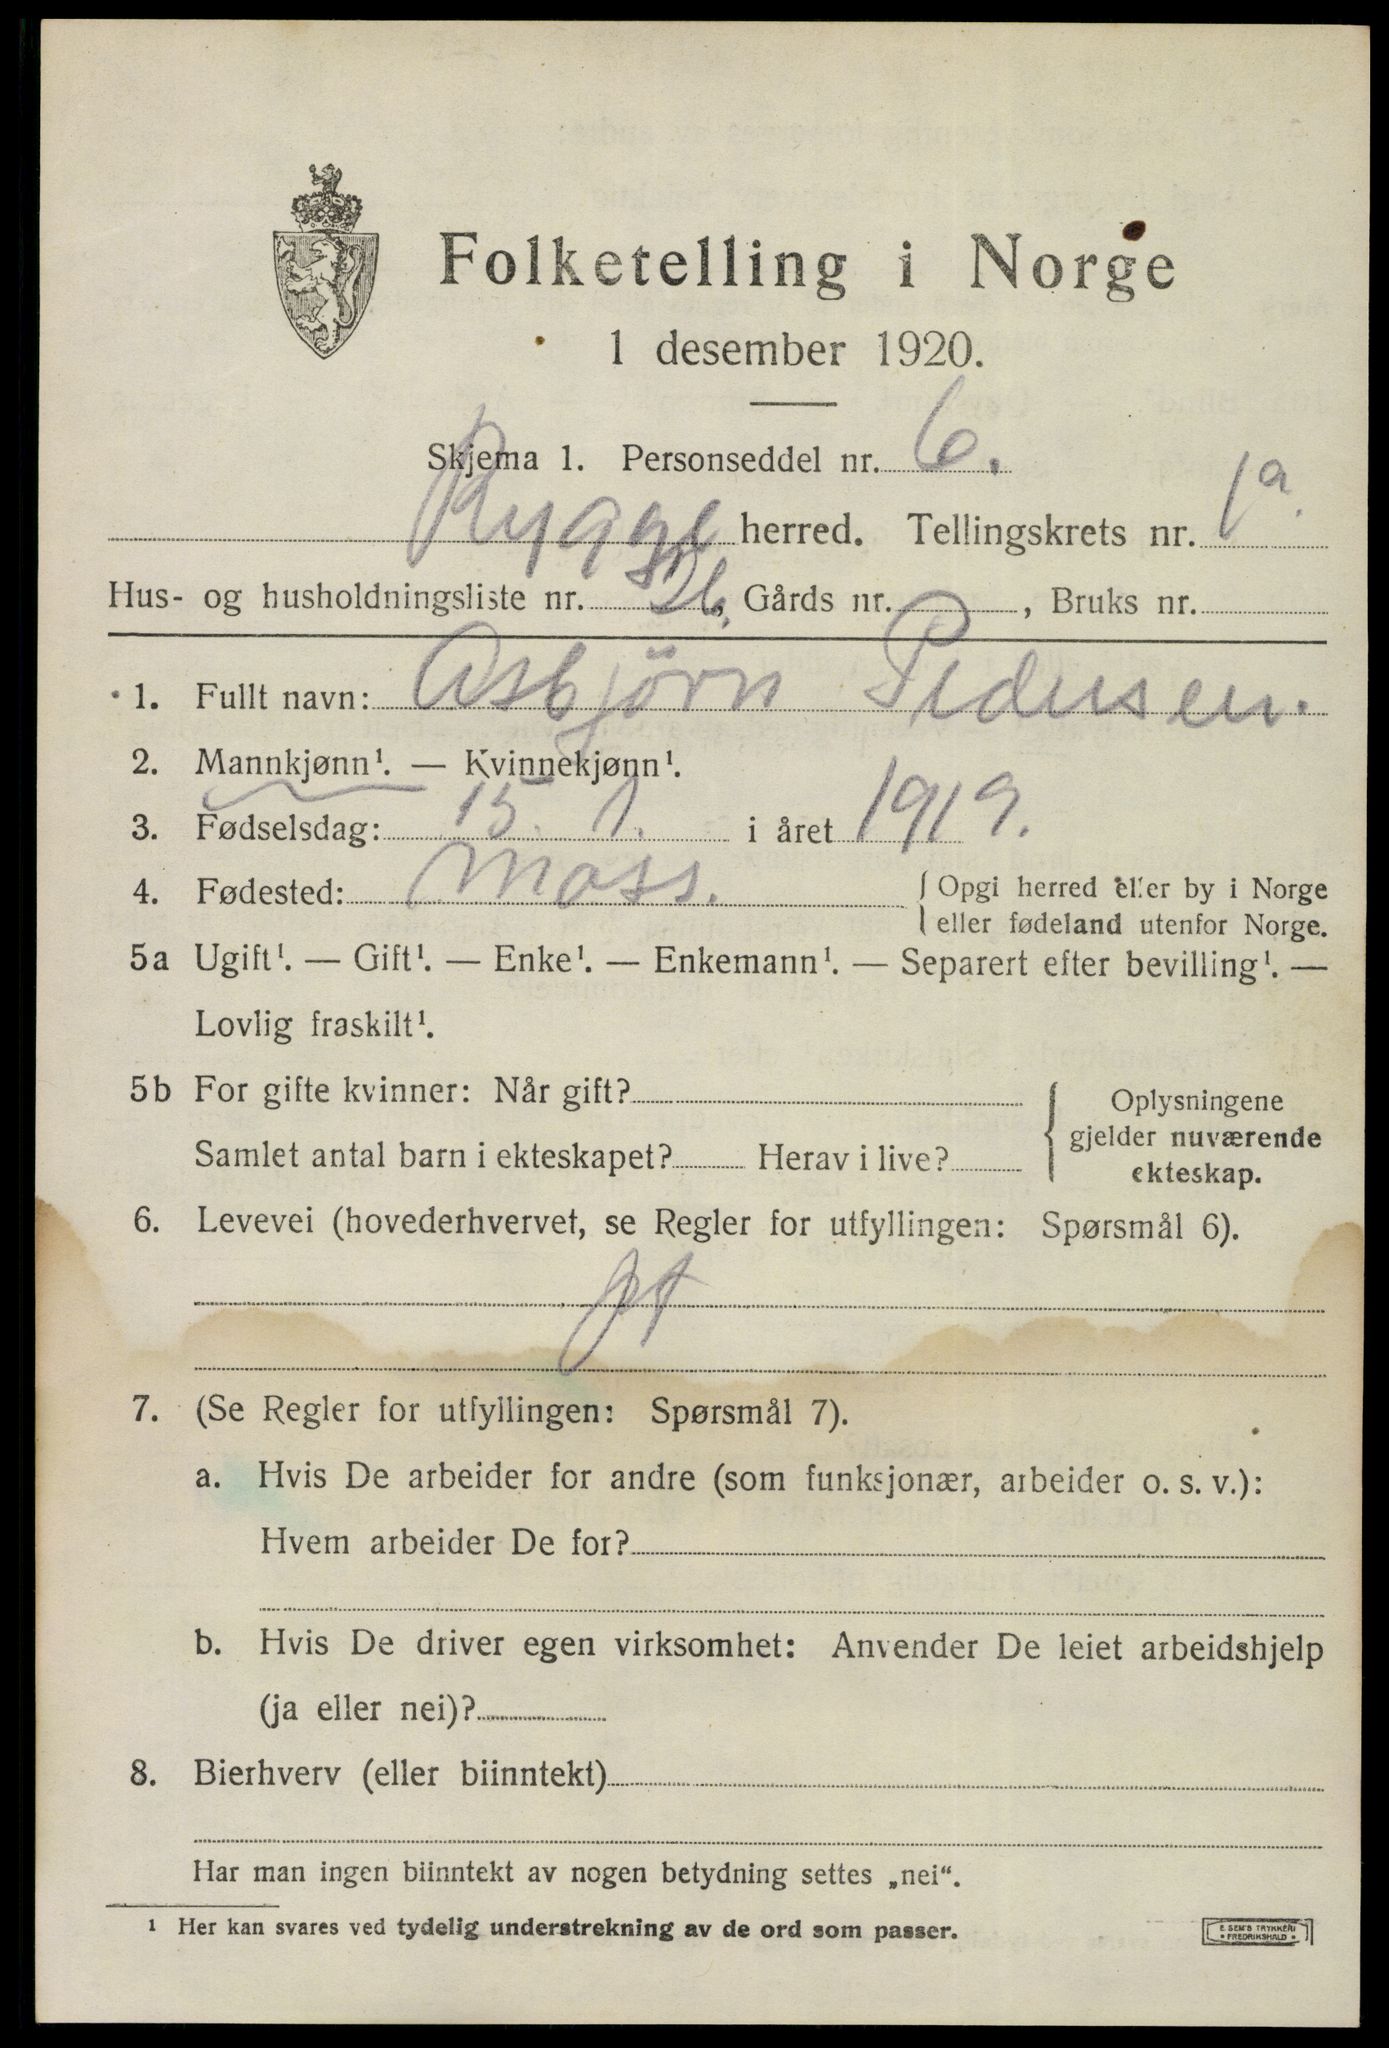 Folketelling i Norge
1 desember 1920.
Skjema 1. Personseddel nr. 6.
Rygge herred. Tellingskrets nr. 1a.
Hus- og husholdningsliste nr. 26., Gårds nr. , Bruks nr.
1. Fullt navn: Asbjörn Pedersen.
2. Mannkjønn¹. — Kvinnekjønn¹.
3. Fødselsdag: 15. 1. i året 1919.
4. Fødested: Moss. { Opgi herred eller by i Norge
eller fødeland utenfor Norge.
5a Ugift¹. — Gift¹. — Enke¹. — Enkemann¹. — Separert efter bevilling¹. —
Lovlig fraskilt¹.
5b For gifte kvinner: Når gift?
Samlet antal barn i ekteskapet? Herav i live?
{ Oplysningene
gjelder nuværende
ekteskap.
6. Levevei (hovederhvervet, se Regler for utfyllingen: Spørsmål 6).
7. (Se Regler for utfyllingen: Spørsmål 7).
a. Hvis De arbeider for andre (som funksjonær, arbeider o. s. v.):
Hvem arbeider De for?
b. Hvis De driver egen virksomhet: Anvender De leiet arbeidshjelp
(ja eller nei)?
8. Bierhverv (eller biinntekt)
Har man ingen biinntekt av nogen betydning settes „nei“.
¹ Her kan svares ved tydelig understrekning av de ord som passer.
E. SEM'S TRYKKERI
• FREDRIKSHALD •